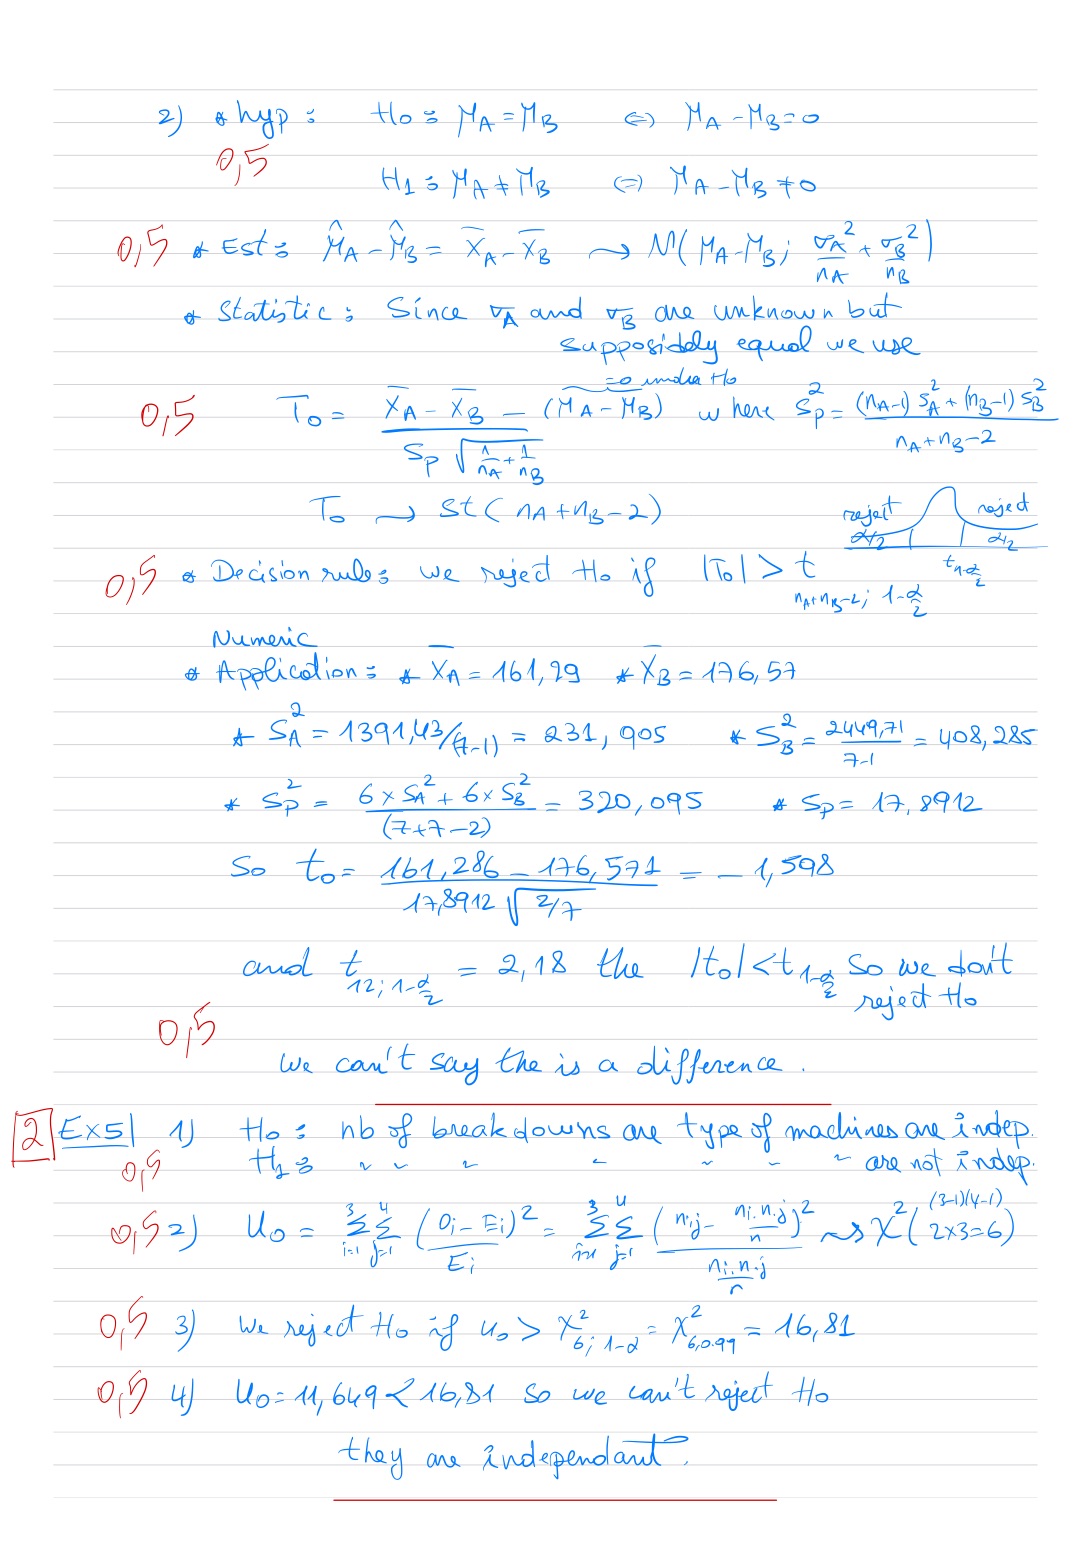 2) * hyp : H0 : μA = μB ⇔ μA - μB = 0
0,5
H1 : μA ≠ μB ⇔ μA - μB ≠ 0
0,5 * Est : μ̂A - μ̂B = X̄A - X̄B ⇝ N(μA - μB ; σA²/nA + σB²/nB)
* Statistic : Since σA and σB are unknown but
supposiddy equal we use
=0 under H0
0,5 T0 = (X̄A - X̄B - (μA - μB)) / (Sp √(1/nA + 1/nB)) where Sp² = ((nA-1) SA² + (nB-1) SB²) / (nA + nB - 2)
T0 ⇝ St(nA + nB - 2)
reject reject
α/2 α/2
0,5 * Decision rule : we reject H0 if |T0| > t nA+nB-2; 1-α/2
t1-α/2
Numeric
* Application : * X̄A = 161,29 * X̄B = 176,57
* SA² = 1391,43/(7-1) = 231,905 * SB² = 2449,71/7-1 = 408,285
* Sp² = (6 × SA² + 6 × SB²) / (7+7-2) = 320,095 * Sp = 17,8912
So t0 = (161,286 - 176,571) / (17,8912 √(2/7)) = - 1,598
and t 12; 1-α/2 = 2,18 the |t0| < t 1-α/2 so we don't
reject H0
0,5
we can't say the is a difference.
2 Ex5| 1) H0 : nb of breakdowns are type of machines are indep.
0,5 H1 : " " " " " " " are not indep.
0,5 2) U0 = Σ(i=1..3) Σ(j=1..4) (Oi - Ei)² / Ei = Σ(i=1..3) Σ(j=1..4) (nij - ni. n.j / n)² / (ni. n.j / n) ⇝ χ²( (3-1)(4-1) 2×3=6 )
0,5 3) We reject H0 if u0 > χ² 6; 1-α = χ² 6,0.99 = 16,81
0,5 4) U0 = 11,649 < 16,81 so we can't reject H0
they are independant.